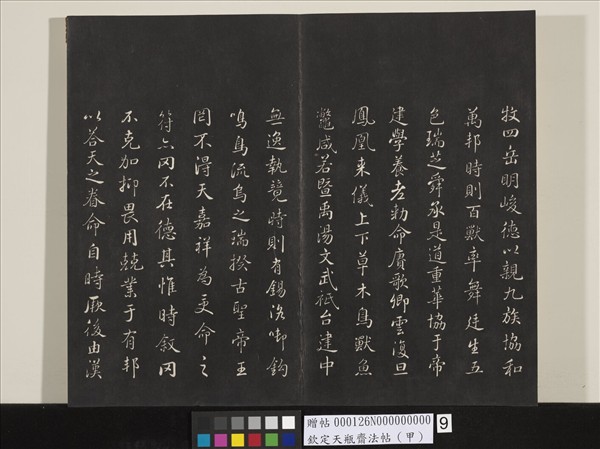 牧四岳明峻德以親九族協和
萬邦時則百獸率舞廷生五
色瑞芝舜承是道重華協于帝
建學養老勅命賡歌卿雲復旦
鳳凰来儀上下草木鳥獸魚
鼈咸若曁禹湯文武祇台建中
無逸執競時則有錫洛啣鈎
鳴鳥流烏之瑞揆古聖帝王
罔不得天嘉祥為受命之
符亦罔不在德其惟時敘罔
不克加抑畏用兢業于有邦
以答天之眷命自時厥後由漢
贈帖 000126N000000000
欽定天瓶齋法帖（甲）
9